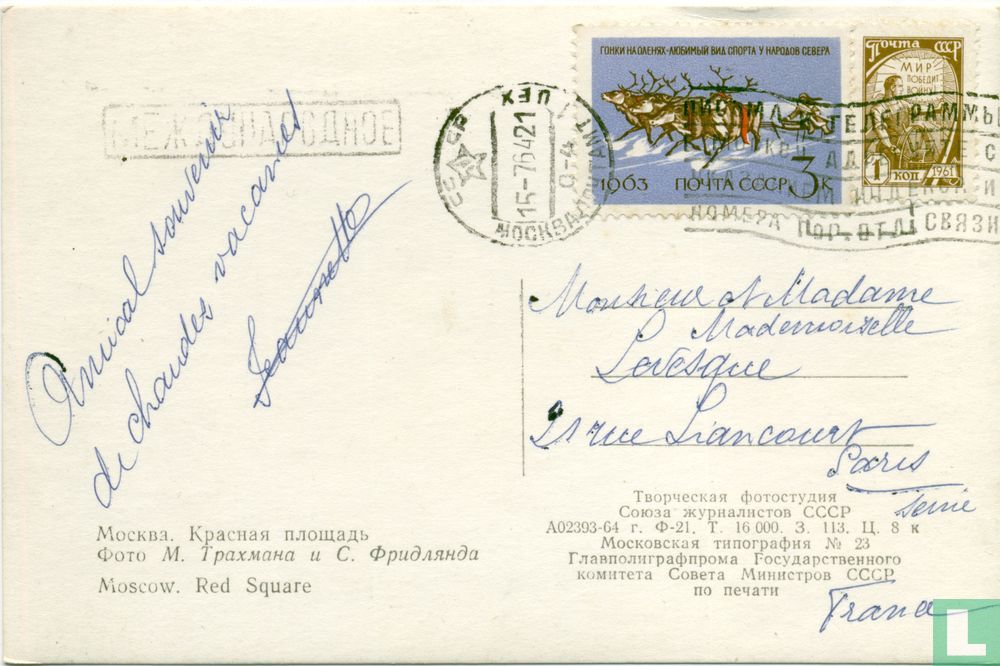 ГОНКИ НА ОЛЕНЯХ-ЛЮБИМЫЙ ВИД СПОРТА У НАРОДОВ СЕВЕРА
1963 ПОЧТА СССР 3 К
Почта СССР
МИР
ПОБЕДИТ
ВОЙНУ
1 КОП 1961
МЕЖДУНАРОДНОЕ
СССР
МОСКВА ПОЧТАМТ
ЦЕХ
ПИСЬМА И ТЕЛЕГРАММЫ
НОМЕРА ПОЧ. ОТД. СВЯЗИ
Amical souvenir
de chaudes vacances
Jeannette
Monsieur et Madame
Mademoiselle
Levesque
21 rue Liancourt
Paris
Seine
France
Москва. Красная площадь
Фото М. Трахмана и С. Фридлянда
Moscow. Red Square
Творческая фотостудия
Союза журналистов СССР
А02393-64 г. Ф-21. Т. 16 000. З. 113. Ц. 8 к
Московская типография № 23
Главполиграфпрома Государственного
комитета Совета Министров СССР
по печати